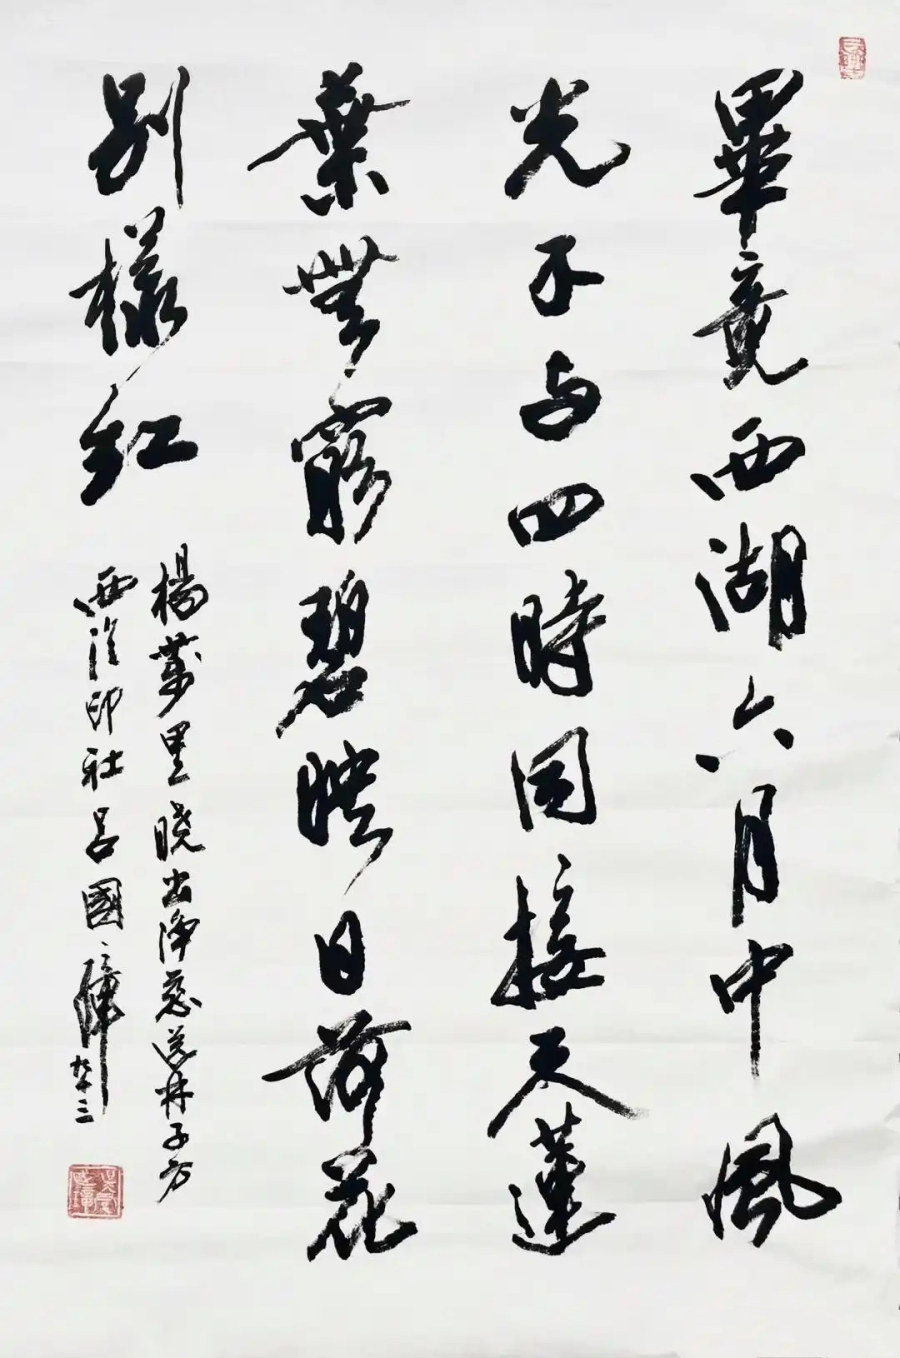 畢竟西湖六月中風
光不与四時同接天蓮
葉無窮碧映日荷花
別樣紅
楊萬里曉出淨慈送林子方
西泠印社吕國璋九十三